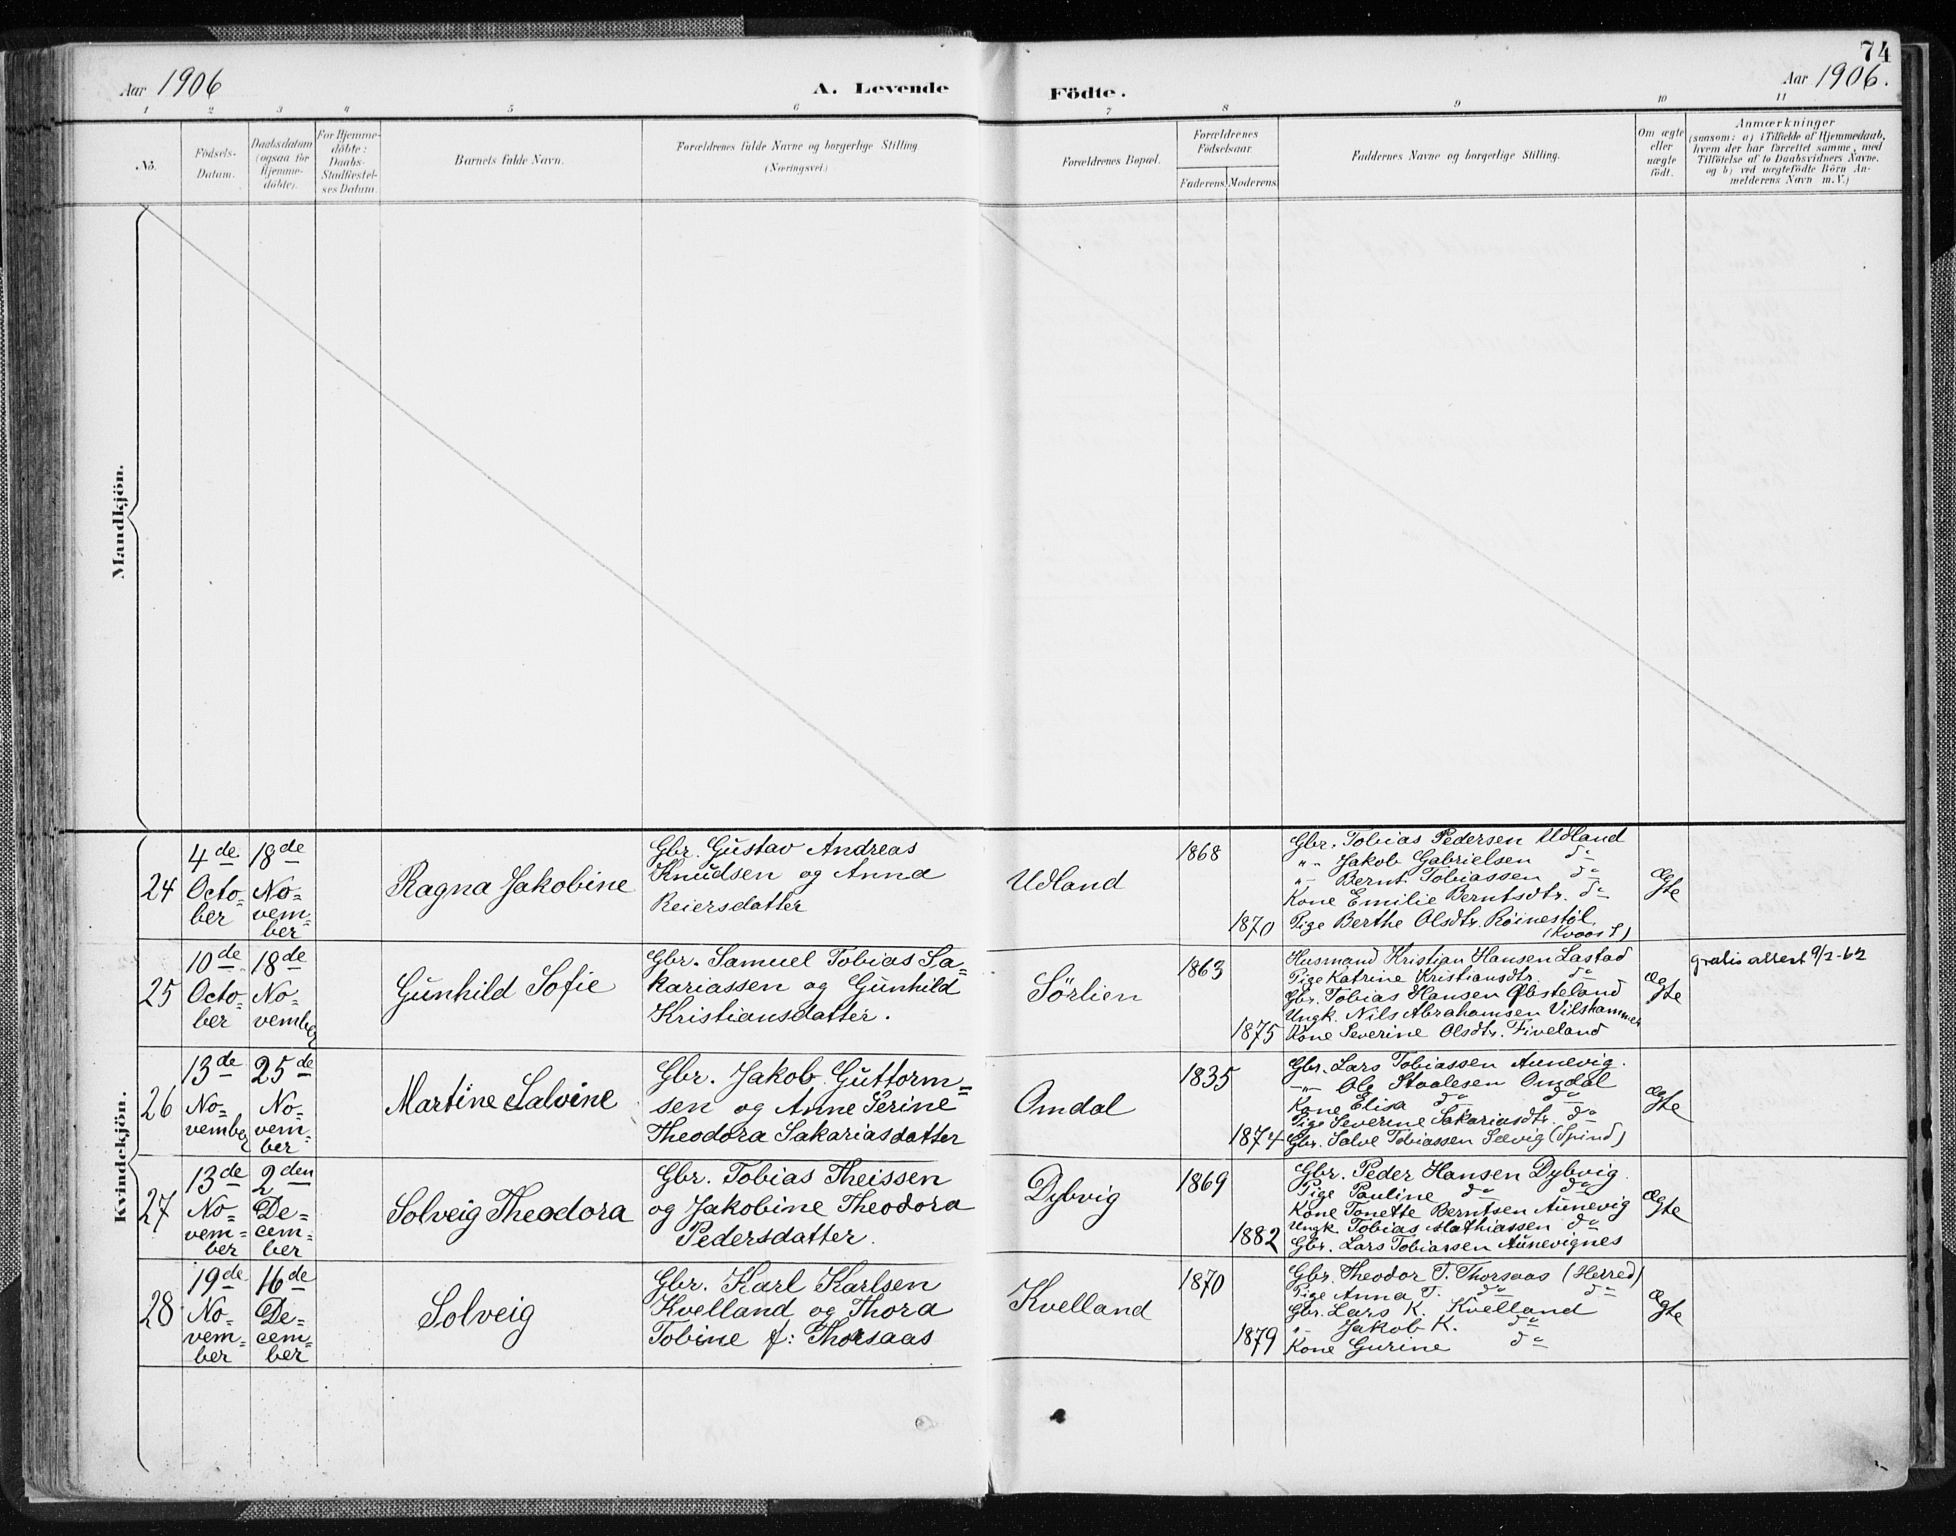 74
Aar 1906
A. Levende Födte.
Aar 1906.
1 2 3 4 5 6 7 8 9 10 11
No.
Födsels-
Datum.
Daabsdatum
(ogsaa for
Hjemme-
döbte).
For Hjemme-
döbte:
Daabs-
Stadfæstel-
ses Datum.
Barnets fulde Navn.
Forældrenes fulde Navne og borgerlige Stilling
(Næringsvei.)
Forældrenes Bopæl.
Forældrenes
Födselsaar.
Faderens. Moderens.
Faddernes Navne og borgerlige Stilling.
Om ægte
eller
uægte
födt.
Anmærkninger
(saasom: a) i Tilfælde af Hjemmedaab,
hvem der har forrettet samme, med
Tilföielse af to Daabsvidners Navne,
og b) ved uægtefödte Börn An-
melderens Navn m.V.)
Mandkjön.
Kvindekjön.
24
4de
Octo-
ber
18de
No-
vem-
ber
Ragna Jakobine
Gbr. Gustav Andreas
Knudsen og Anna
Reiersdatter
Udland
1868
1870
Gbr. Tobias Pedersen Udland
"- Jakob Gabrielsen do
"- Bernt Tobiassen do
Kone Emilie Berntsdtr. do
Pige Berthe Olsdtr. Röinestöl
(Kvaas S)
Ægte
25
10de
Octo-
ber
18de
No-
vember
Gunhild Sofie
Gbr. Samuel Tobias Sa-
kariassen og Gunhild
Kristiansdatter.
Sörlien
1863
1875
Husmand Kristian Hansen Lastad
Pige Katrine Kristiansdtr. do
Gbr. Tobias Hansen Öbsteland
Ungk. Nils Abrahamsen Vilshammer
Kone Severine Olsdtr. Fiveland
Ægte
gratis attest 9/2-62
26
13de
No-
vember
25de
No-
vem-
ber
Martine Salvine
Gbr. Jakob Guttorm-
sen og Anne Serine
Theodora Sakariasdatter
Omdal
1835
1874
Gbr. Lars Tobiassen Aunevig.
-"- Ole Staalesen Omdal
Kone Elisa do do
Pige Severine Sakariasdtr. do
Gbr. Salve Tobiassen Selvig (Spind)
Ægte
27
13de
No-
vem-
ber
2den
De-
cem-
ber
Solveig Theodora
Gbr. Tobias Theissen
og Jakobine Theodora
Pedersdatter.
Dybvig
1869
1882
Gbr. Peder Hansen Dybvig.
Pige Pauline do do
Kone Tonette Berntsen Aunevig
Ungk. Tobias Mathiassen do
Gbr. Lars Tobiassen Aunevignes
Ægte
28
19de
No-
vem-
ber
16de
De-
cem-
ber
Solveig
Gbr. Karl Karlsen
Kvelland og Thora
Tobine f: Thorsaas
Kvelland
1870
1879
Gbr. Theodor T. Thorsaas (Herred)
Pige Anna T. do do
Gbr. Lars K. Kvelland
"- Jakob K. do
Kone Gurine do
Ægte